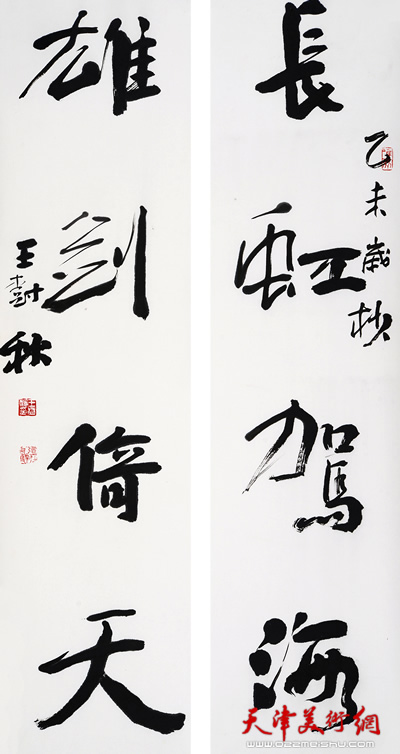 長虹駕海
乙未歲杪
雄劍倚天
王樹秋
天津美術網
www.022meishu.com